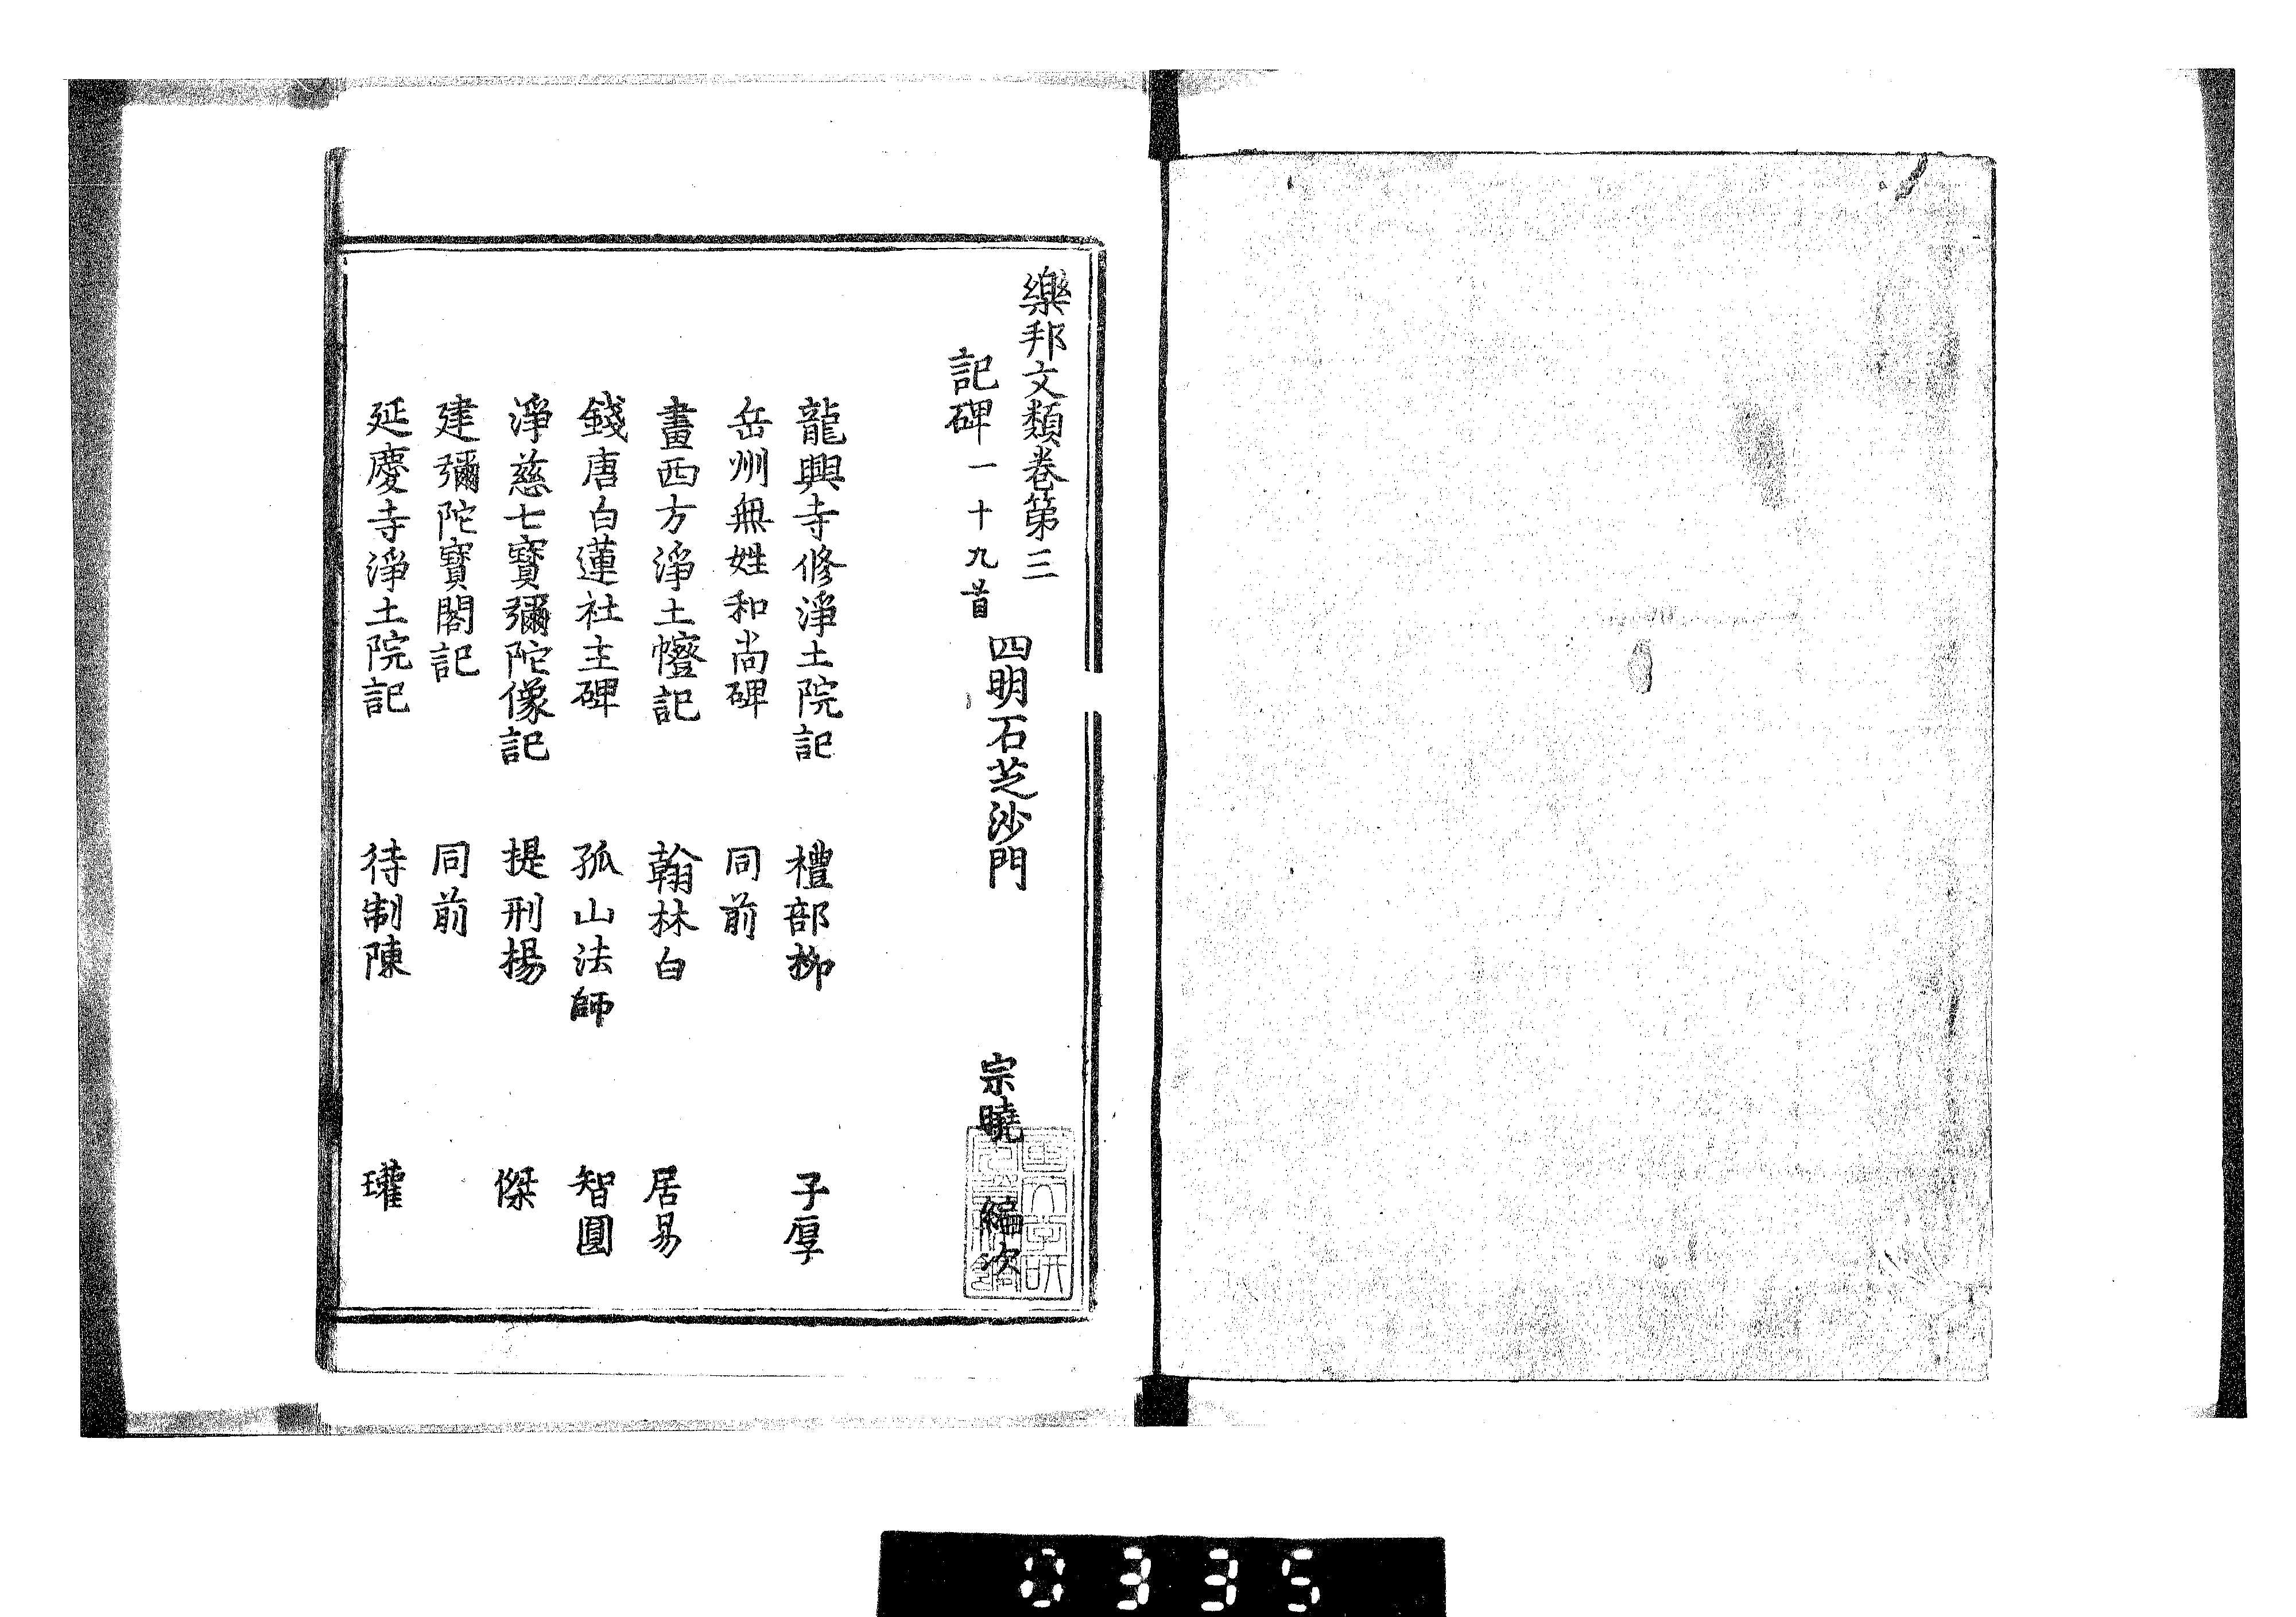 樂邦文類卷第三
四明石芝沙門 宗曉 編次
記碑一十九首
龍興寺修淨土院記 禮部柳 子厚
岳州無姓和尚碑 同前
畫西方淨土㡧記 翰林白 居易
錢唐白蓮社主碑 孤山法師 智圓
淨慈七寶彌陀像記 提刑楊 傑
建彌陀寶閣記 同前
延慶寺淨土院記 待制陳 瓘
0335